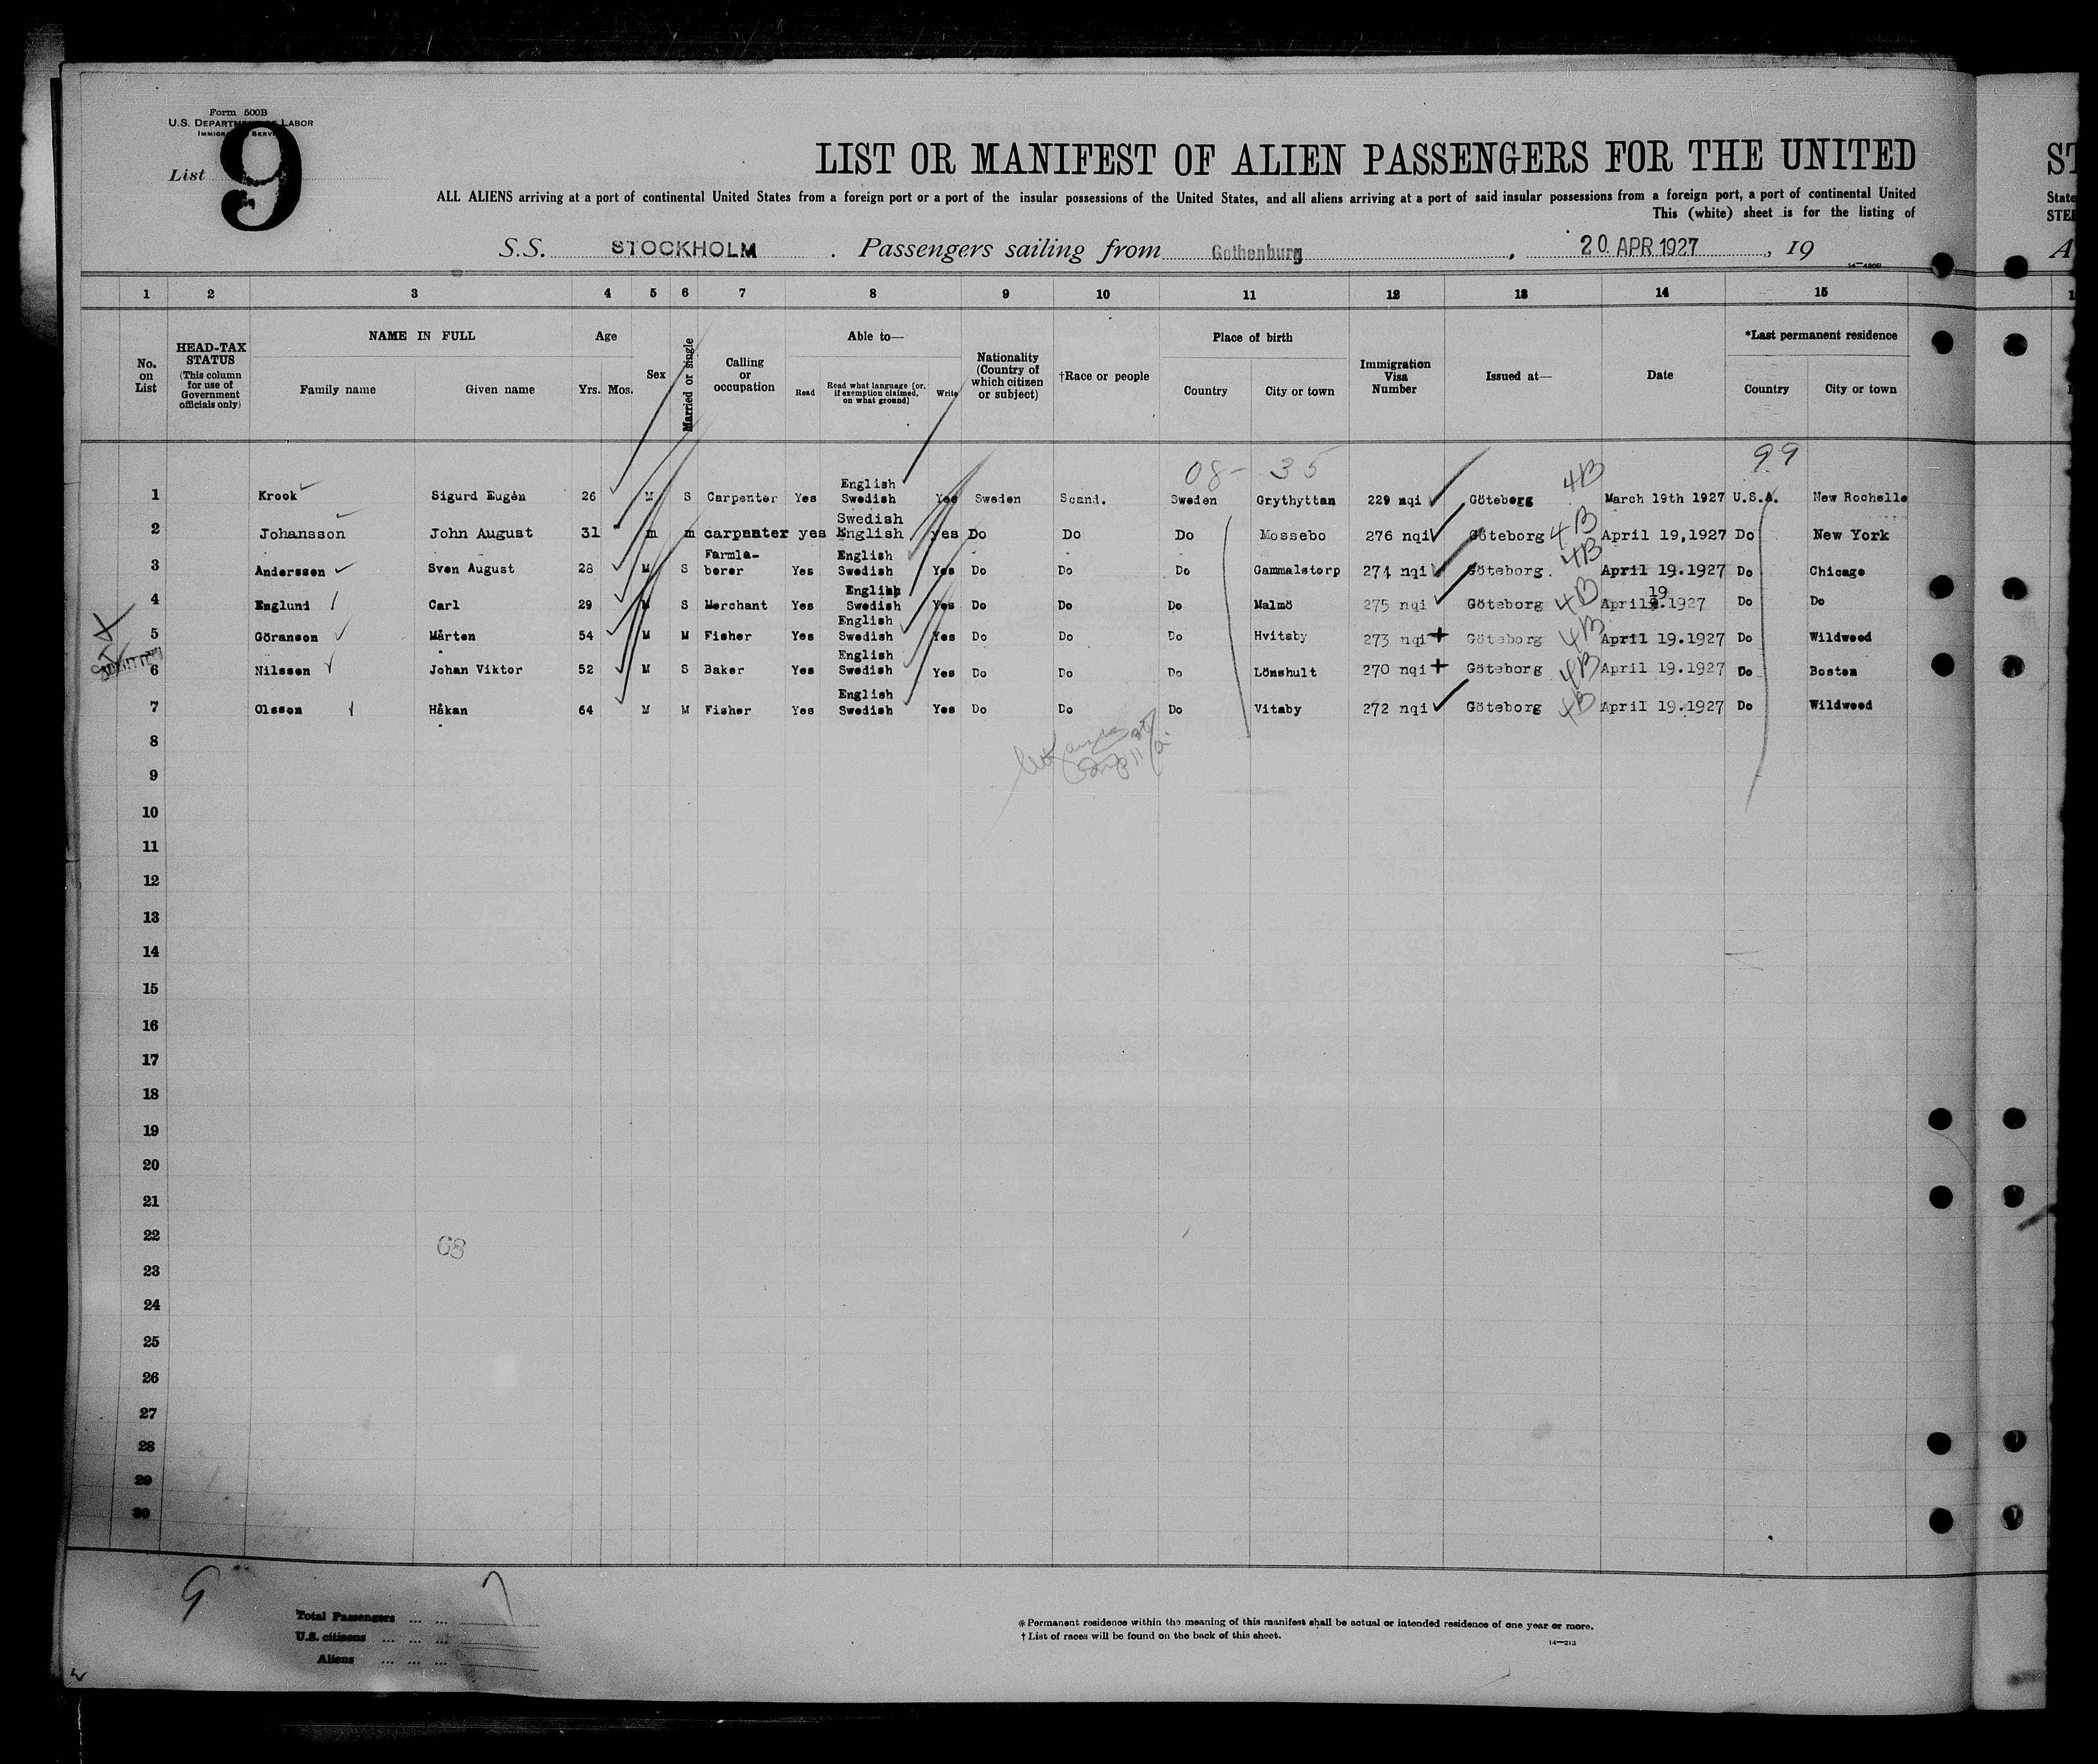 Form 500B
U.S. DEPARTMENT OF LABOR
IMMIGRATION SERVICE
List 9
LIST OR MANIFEST OF ALIEN PASSENGERS FOR THE UNITED ST
ALL ALIENS arriving at a port of continental United States from a foreign port or a port of the insular possessions of the United States, and all aliens arriving at a port of said insular possessions from a foreign port, a port of continental United State
This (white) sheet is for the listing of STEE
S.S. STOCKHOLM . Passengers sailing from Gothenburg , 20 APR 1927 , 19 A
14—420B
1 2 3 4 5 6 7 8 9 10 11 12 13 14 15
No. on List
HEAD-TAX STATUS (This column for use of Government officials only)
NAME IN FULL
Family name Given name
Age
Yrs. Mos.
Sex
Married or single
Calling or occupation
Able to—
Read Read what language (or, if exemption claimed, on what ground) Write
Nationality (Country of which citizen or subject)
†Race or people
Place of birth
Country City or town
Immigration Visa Number
Issued at—
Date
*Last permanent residence
Country City or town
08- 35 99
1 Krook Sigurd Eugén 26 M S Carpenter Yes English Swedish Yes Sweden Scand. Sweden Grythyttan 229 nqi Göteborg 4B March 19th 1927 U.S.A. New Rochelle
2 Johansson John August 31 m m carpenter yes Swedish English yes Do Do Do Mossebo 276 nqi Göteborg 4B April 19,1927 Do New York
3 Andersson Sven August 28 M S Farmla- borer Yes English Swedish Yes Do Do Do Gammalstorp 274 nqi Göteborg 4B April 19.1927 Do Chicago
4 Englund Carl 29 M S Merchant Yes English Swedish Yes Do Do Do Malmö 275 nqi Göteborg 4B April 19.1927 Do Do
5 Göranson Mårten 54 M M Fisher Yes English Swedish Yes Do Do Do Hvitaby 273 nqi Göteborg 4B April 19.1927 Do Wildwood
6 Nilsson Johan Viktor 52 M S Baker Yes English Swedish Yes Do Do Do Lönshult 270 nqi Göteborg 4B April 19.1927 Do Boston
7 Olsson Håkan 64 M M Fisher Yes English Swedish Yes Do Do Do Vitaby 272 nqi Göteborg 4B April 19.1927 Do Wildwood
8
9
10
11
12
13
14
15
16
17
18
19
20
21
22
68
23
24
25
26
27
28
29
30
9
Total Passengers ... ... 7
U.S. citizens ... ... ...
Aliens ... ... ...
*Permanent residence within the meaning of this manifest shall be actual or intended residence of one year or more.
†List of races will be found on the back of this sheet.
14—213